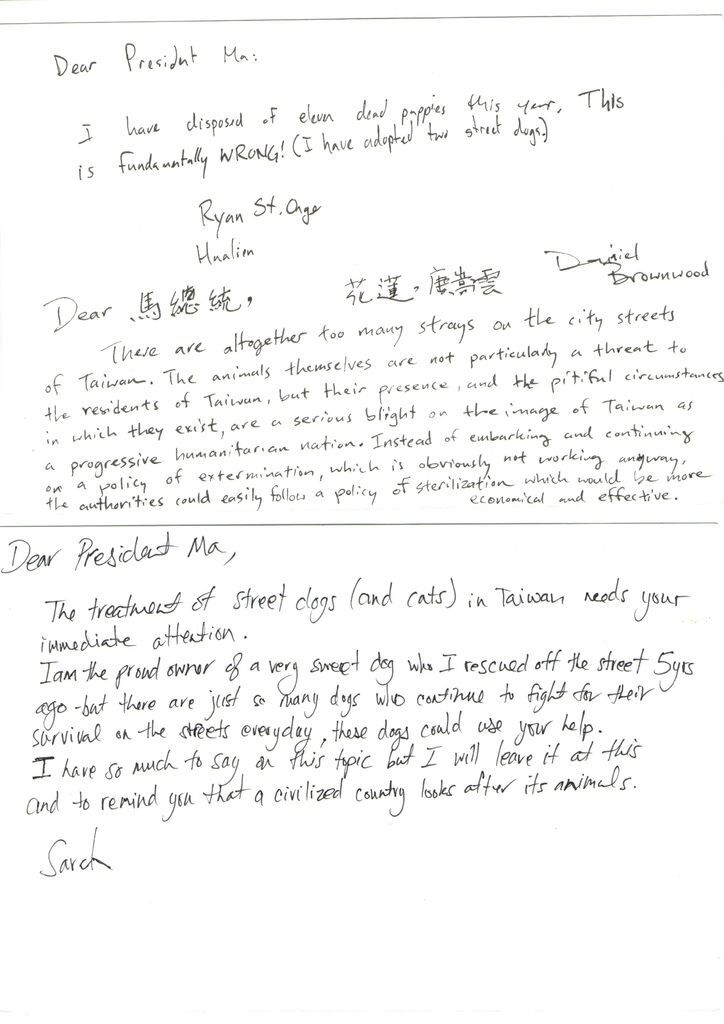 Dear President Ma:
I have disposed of eleven dead puppies this year. This
is fundamentally WRONG! (I have adopted two street dogs.)
Ryan St. Onge
Hualien
Daniel
Brownwood
Dear 馬總統, 花蓮, 唐嵩雲
There are altogether too many strays on the city streets
of Taiwan. The animals themselves are not particularly a threat to
the residents of Taiwan, but their presence, and the pitiful circumstances
in which they exist, are a serious blight on the image of Taiwan as
a progressive humanitarian nation. Instead of embarking and continuing
on a policy of extermination, which is obviously not working anyway,
the authorities could easily follow a policy of sterilization which would be more
economical and effective.
Dear President Ma,
The treatment of street dogs (and cats) in Taiwan needs your
immediate attention.
I am the proud owner of a very sweet dog who I rescued off the street 5yrs
ago - but there are just so many dogs who continue to fight for their
survival on the streets everyday, these dogs could use your help.
I have so much to say on this topic but I will leave it at this
and to remind you that a civilized country looks after its animals.
Sarah